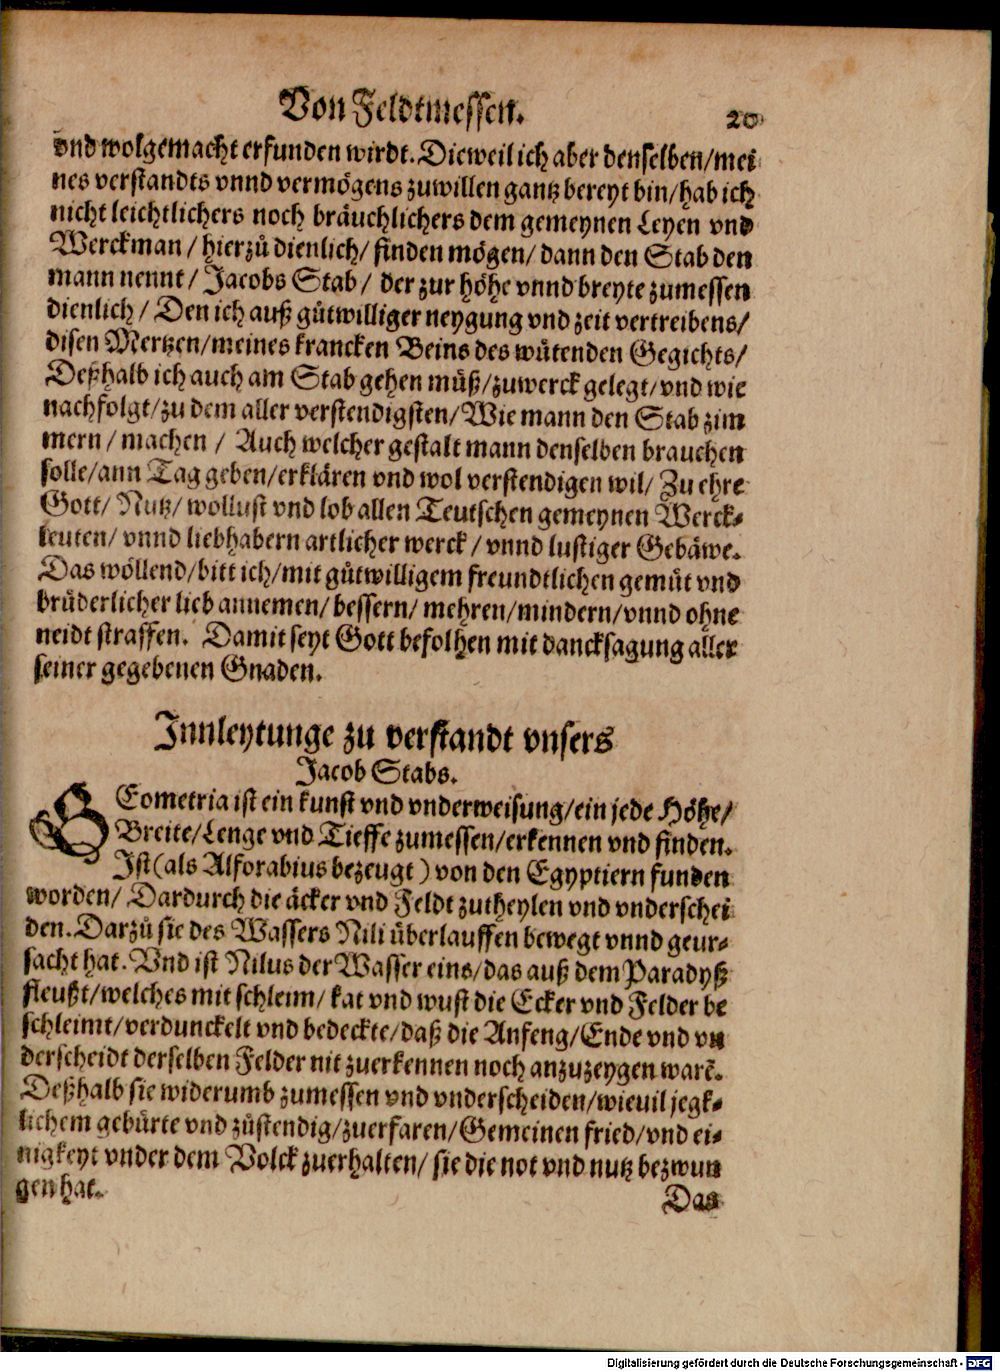 Von Feldtmessen. 20
vnd wolgemacht erfunden wirdt. Dieweil ich aber denselben/mei
nes verstandts vnnd vermögens zuwillen gantz bereyt bin/hab ich
nicht leichtlichers noch bräuchlichers dem gemeynen Leyen vnd
Werckman / hierzů dienlich/ finden mögen/ dann den Stab den
mann nennt / Jacobs Stab / der zur höhe vnnd breyte zumessen
dienlich / Den ich auß gůtwilliger neygung vnd zeit vertreibens/
disen Mertzen/meines krancken Beins des wütenden Gegichts/
Deßhalb ich auch am Stab gehen můß/zuwerck gelegt/vnd wie
nachfolgt/zu dem aller verstendigsten/Wie mann den Stab zim
mern / machen / Auch welcher gestalt mann denselben brauchen
solle/ann Tag geben/erklären vnd wol verstendigen wil/ Zu ehre
Gott/ Nutz/ wollust vnd lob allen Teutschen gemeynen Werck-
leuten/ vnnd liebhabern artlicher werck / vnnd lustiger Gebäwe.
Das wöllend/bitt ich/mit gůtwilligem freundtlichen gemůt vnd
brůderlicher lieb annemen/ bessern/ mehren/mindern/vnnd ohne
neidt straffen. Damit seyt Gott befolhen mit dancksagung aller
seiner gegebenen Gnaden.
Innleytunge zu verstandt vnsers
Jacob Stabs.
GEometria ist ein kunst vnd vnderweisung/ein jede Höhe/
Breite/Lenge vnd Tieffe zumessen/erkennen vnd finden.
Ist (als Alforabius bezeugt) von den Egyptiern funden
worden/ Dardurch die äcker vnd Feldt zutheylen vnd vnderschei
den. Darzů sie des Wassers Nili überlauffen bewegt vnnd geur-
sacht hat. Vnd ist Nilus der Wasser eins/das auß dem Paradyß
fleußt/welches mit schleim/ kat vnd wust die Ecker vnd Felder be
schleimt/verdunckelt vnd bedeckte/daß die Anfeng/Ende vnd vn
derscheidt derselben Felder nit zuerkennen noch anzuzeygen warẽ.
Deßhalb sie widerumb zumessen vnd vnderscheiden/wievil jegk-
lichem gebürte vnd zůstendig/zuerfaren/Gemeinen fried/vnd ei-
nigkeyt vnder dem Volck zuerhalten/ sie die not vnd nutz bezwun
gen hat.
Das
Digitalisierung gefördert durch die Deutsche Forschungsgemeinschaft - DFG